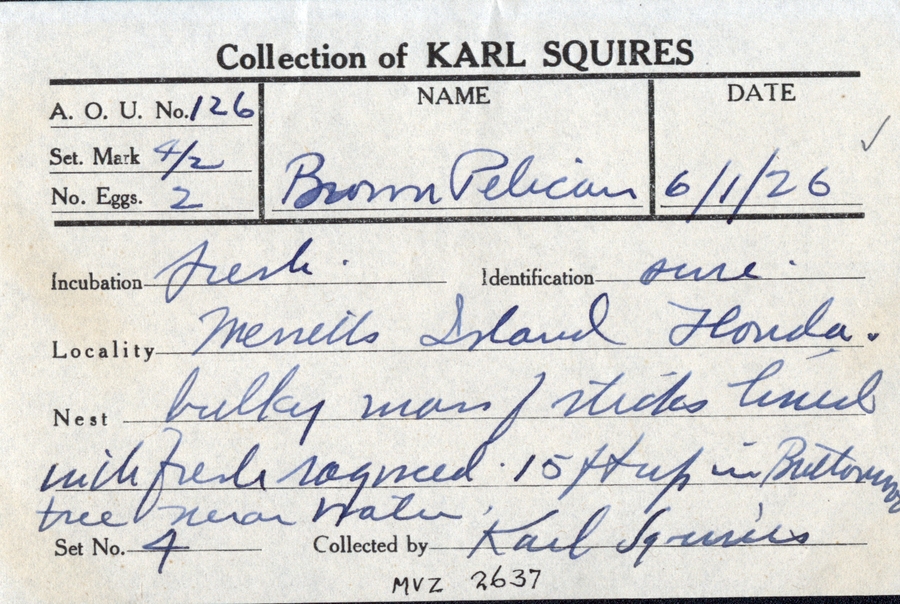 Collection of KARL SQUIRES
A. O. U. No. 126
NAME
DATE
Set. Mark 4/2
No. Eggs. 2
Brown Pelican
6/1/26
Incubation fresh. Identification sure.
Locality Merrells Island Florida.
Nest bulky mass of sticks lined
with fresh ragweed. 15 ft up in
tree near water.
Set No. 4 Collected by Karl Squires
MVZ 2637